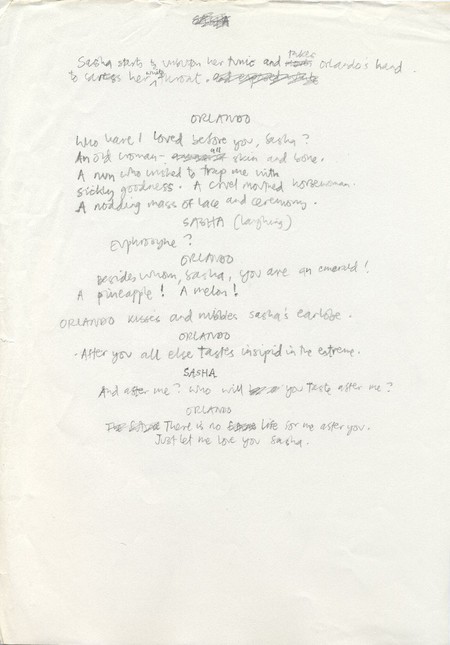 Sasha starts to unbutton her tunic and Orlando's hand
to caress her white throat.
ORLANDO
Who have I loved before you, Sasha?
An old woman - all skin and bone.
A nun who wished to trap me with
sickly goodness. A cruel mouthed horsewoman.
A nodding mass of lace and ceremony.
SASHA (laughing)
Euphrosyne?
ORLANDO
Besides whom, Sasha, you are an emerald!
A pineapple! A melon!
ORLANDO kisses and nibbles Sasha's earlobe.
ORLANDO
After you all else tastes insipid in the extreme.
SASHA
And after me? Who will you taste after me?
ORLANDO
There is no life for me after you.
Just let me love you Sasha.